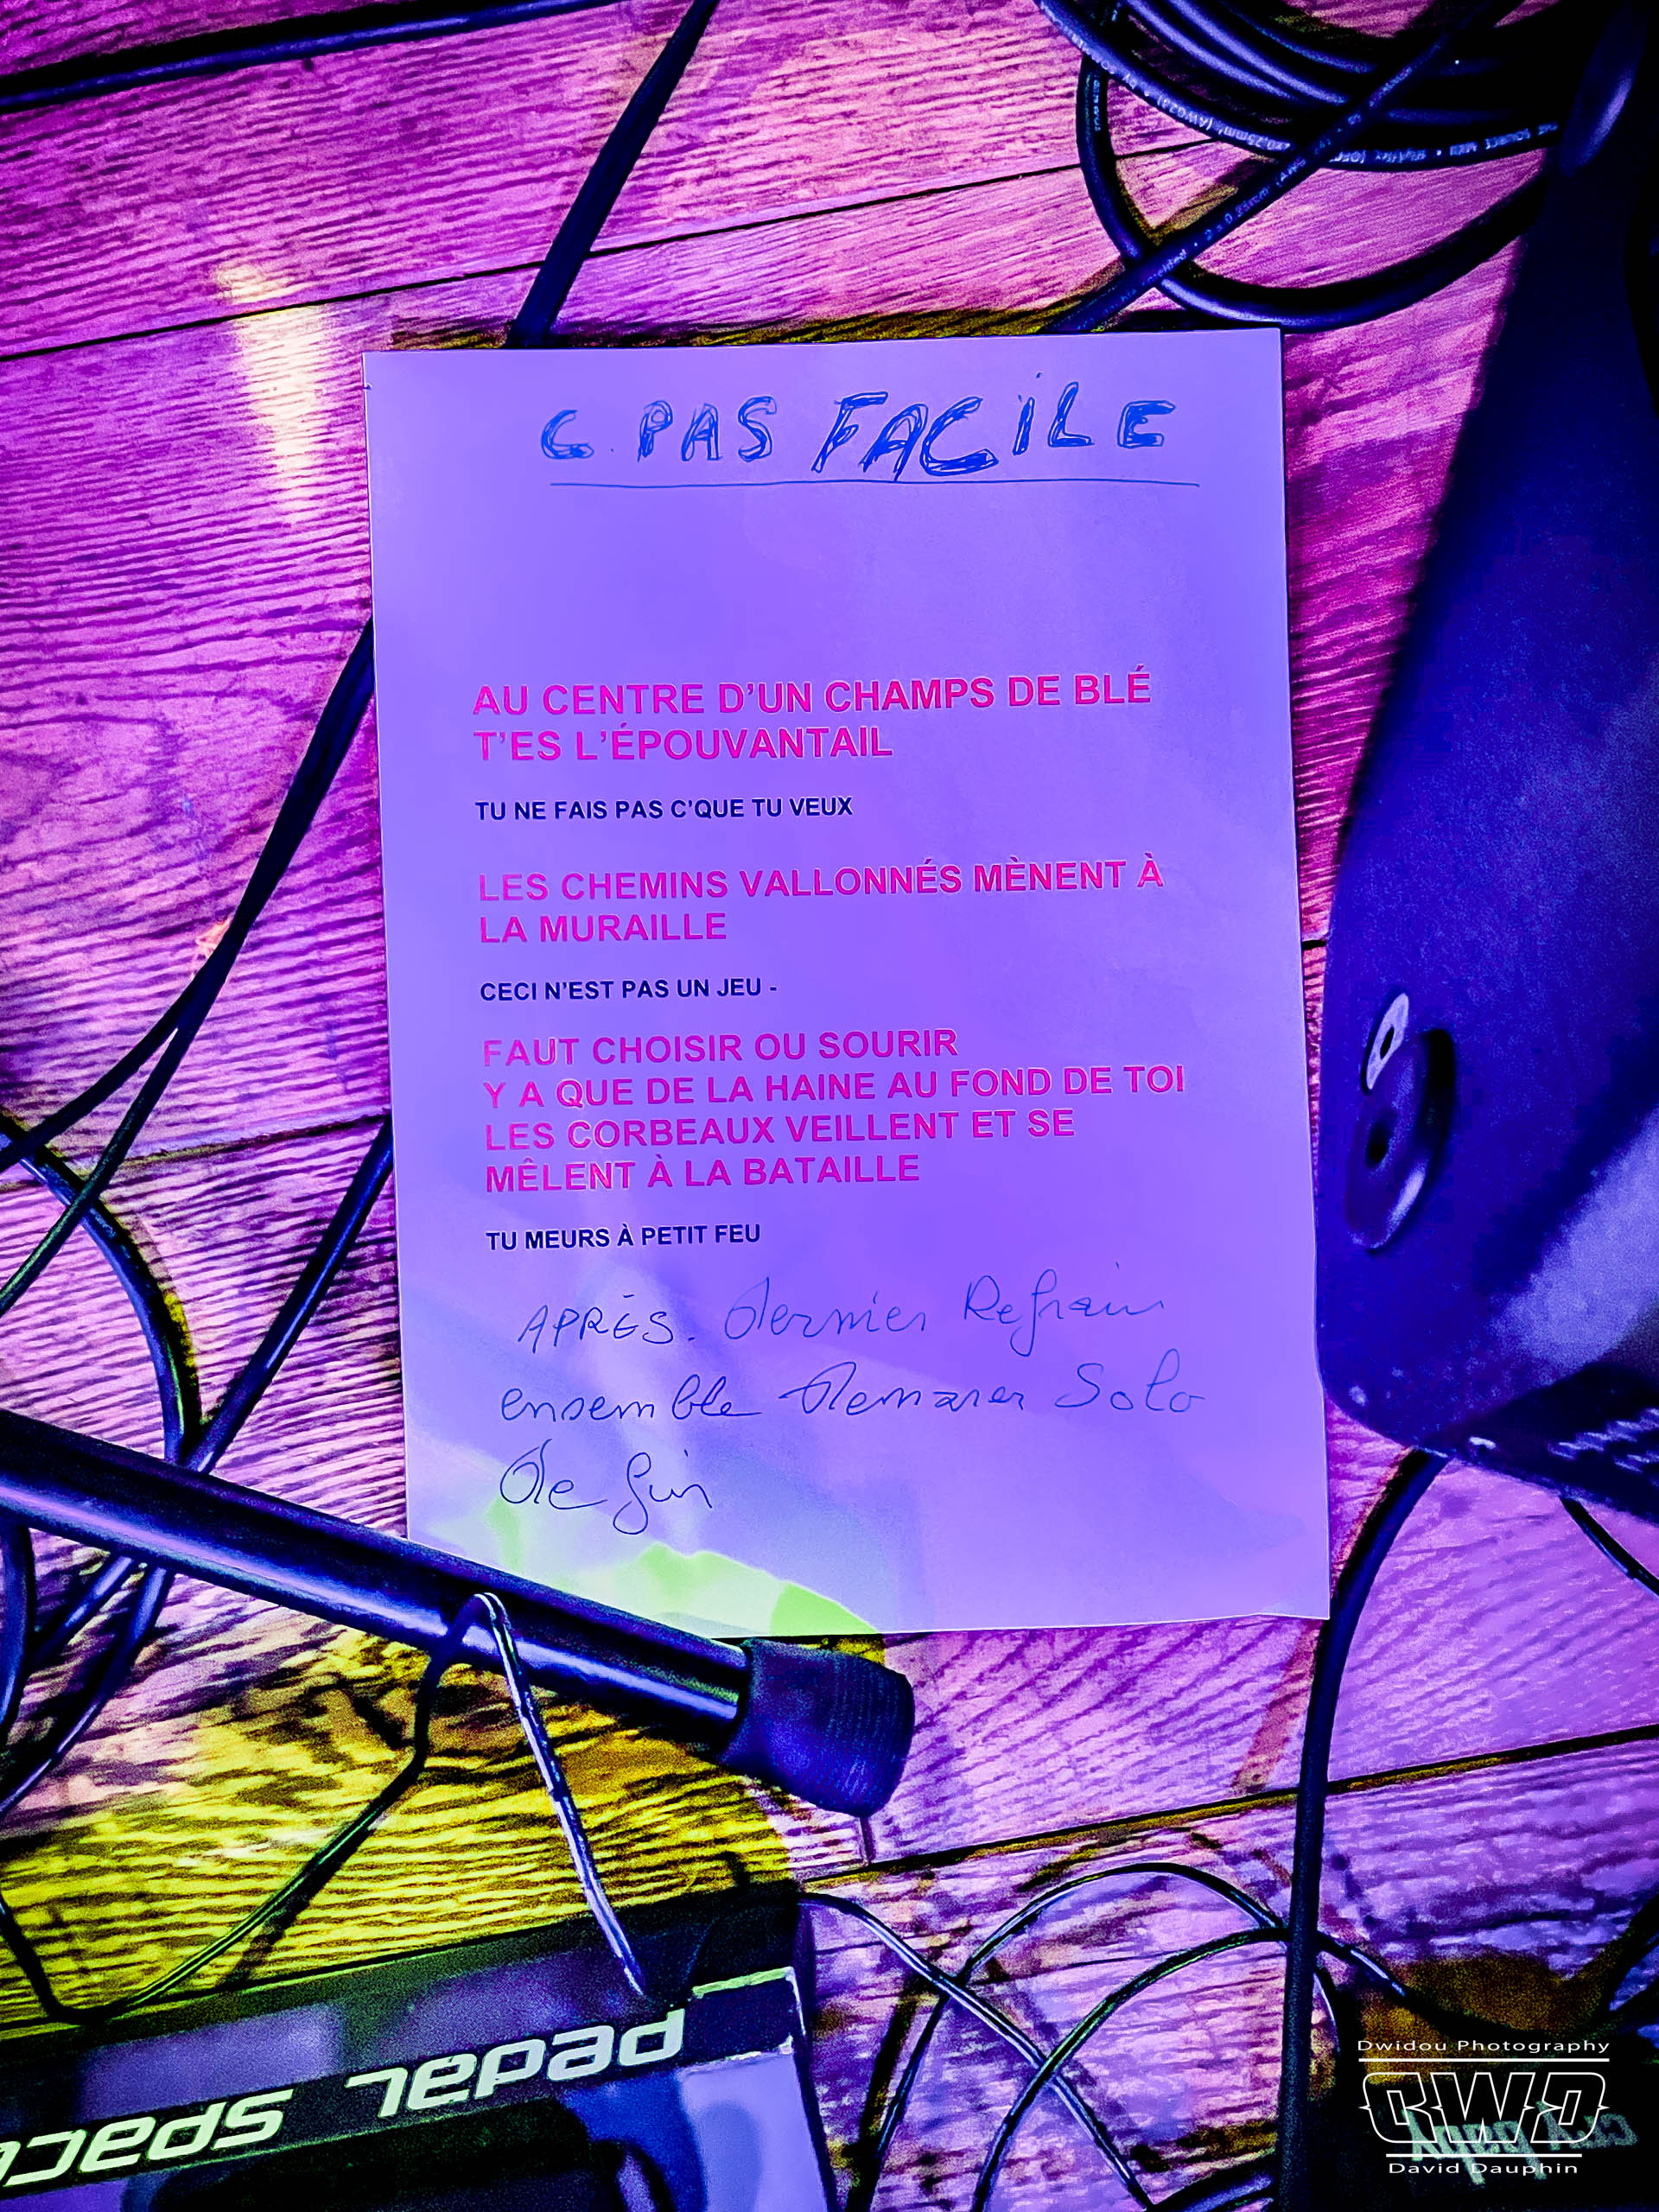 C PAS FACILE
AU CENTRE D'UN CHAMPS DE BLÉ
T'ES L'ÉPOUVANTAIL
TU NE FAIS PAS C'QUE TU VEUX
LES CHEMINS VALLONNÉS MÈNENT À
LA MURAILLE
CECI N'EST PAS UN JEU -
FAUT CHOISIR OU SOURIR
Y A QUE DE LA HAINE AU FOND DE TOI
LES CORBEAUX VEILLENT ET SE
MÊLENT À LA BATAILLE
TU MEURS À PETIT FEU
APRÈS. dernier Refrain
ensemble demarer Solo
de fin
pedal space
Dwidou Photography
DWD
David Dauphin